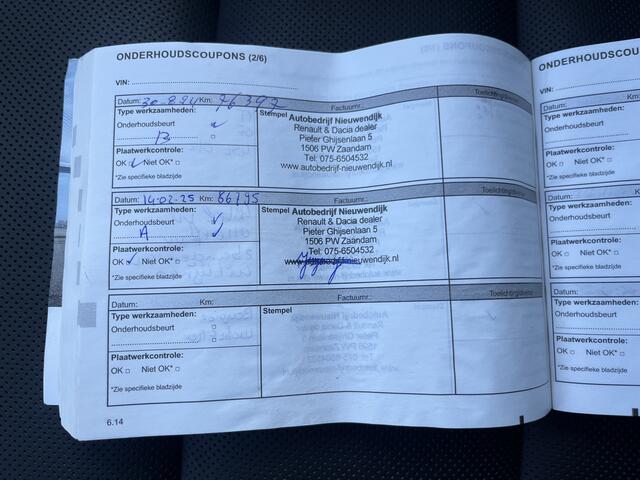 ONDERHOUDSCOUPONS (2/6)
VIN:
Datum: 30.8.24 Km: 76392 Factuurnr.: Toelichting/datum:
Type werkzaamheden:
Onderhoudsbeurt
B
Plaatwerkcontrole:
OK Niet OK*
*Zie specifieke bladzijde
Stempel
Autobedrijf Nieuwendijk
Renault & Dacia dealer
Pieter Ghijsenlaan 5
1506 PW Zaandam
Tel: 075-6504532
www.autobedrijf-nieuwendijk.nl
Datum: 14-02-25 Km: 86795 Factuurnr.: Toelichting/datum:
Type werkzaamheden:
Onderhoudsbeurt
A
Plaatwerkcontrole:
OK Niet OK*
*Zie specifieke bladzijde
Stempel
Autobedrijf Nieuwendijk
Renault & Dacia dealer
Pieter Ghijsenlaan 5
1506 PW Zaandam
Tel: 075-6504532
Datum: Km: Factuurnr.: Toelichting/datum:
Type werkzaamheden:
Onderhoudsbeurt
Plaatwerkcontrole:
OK Niet OK*
*Zie specifieke bladzijde
Stempel
6.14
ONDERHOUDSCOUPON
VIN:
Datum:
Type werkzaamheden:
Onderhoudsbeurt
Plaatwerkcontrole:
OK Niet OK*
*Zie specifieke bladzijde
Datum:
Type werkzaamheden:
Onderhoudsbeurt
Plaatwerkcontrole:
OK Niet OK*
*Zie specifieke bladzijde
Datum:
Type werkzaamheden:
Onderhoudsbeurt
Plaatwerkcontrole:
OK Niet OK*
*Zie specifieke bladzijde